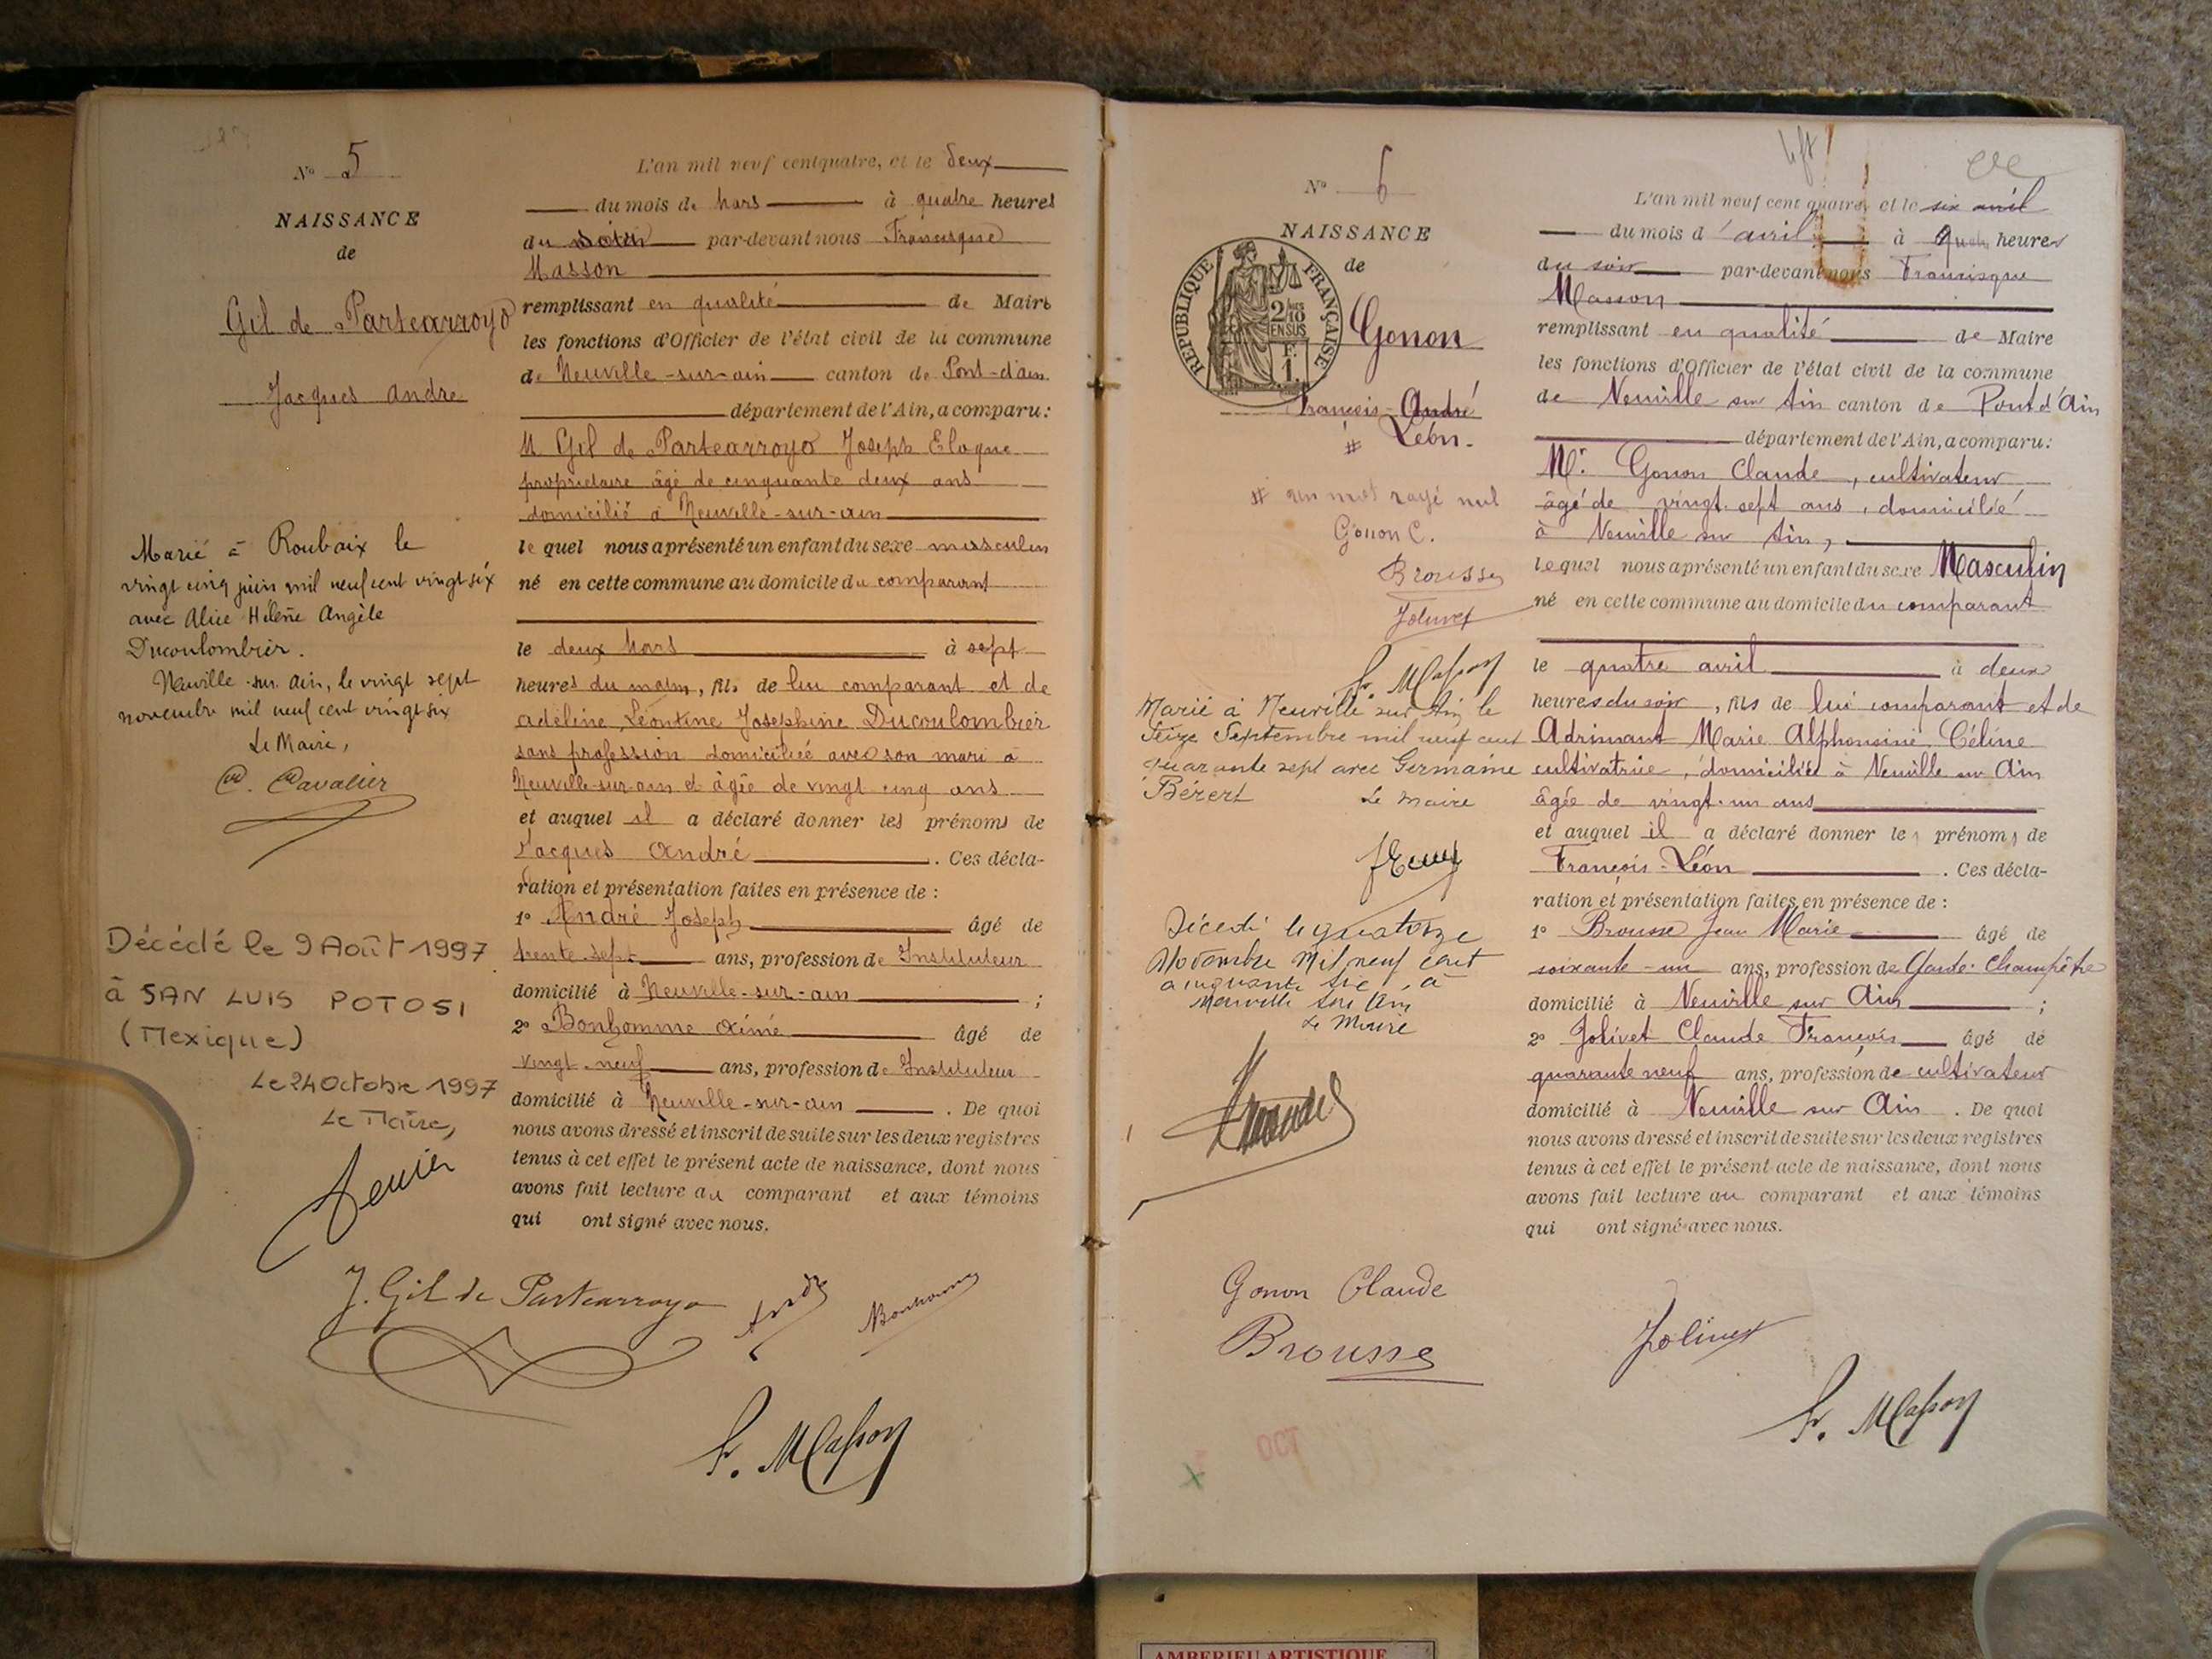 N° 5
NAISSANCE
de
Gil de Partearroyo
Jacques André
Marié à Roubaix le
vingt cinq juin mil neuf cent vingt six
avec Alice Hélène Angèle
Ducoulombier.
Neuville-sur-Ain, le vingt sept
novembre mil neuf cent vingt six
Le Maire,
Cavalier
Décédé le 9 Août 1997
à SAN LUIS POTOSI
(Mexique)
Le 24 Octobre 1997
Le Maire,
L'an mil neuf cent quatre, et le deux
du mois de Mars à quatre heures
du soir par-devant nous Francisque
Masson
remplissant en qualité de Maire
les fonctions d'Officier de l'état civil de la commune
de Neuville-sur-ain canton de Pont-d'ain
département de l'Ain, a comparu:
M Gil de Partearroyo Joseph Eloque
propriétaire âgé de cinquante deux ans
domicilié à Neuville-sur-ain
lequel nous a présenté un enfant du sexe masculin
né en cette commune au domicile du comparant
le deux Mars à sept
heures du matin, fils de lui comparant et de
Adéline, Léontine Joséphine Ducoulombier
sans profession domiciliée avec son mari à
Neuville-sur-ain et âgée de vingt cinq ans
et auquel il a déclaré donner les prénoms de
Jacques André. Ces décla-
ration et présentation faites en présence de :
1° André Joseph âgé de
trente-sept ans, profession de Instituteur
domicilié à Neuville-sur-ain ;
2° Bonhomme Aimé âgé de
vingt-neuf ans, profession de Instituteur
domicilié à Neuville-sur-ain. De quoi
nous avons dressé et inscrit de suite sur les deux registres
tenus à cet effet le présent acte de naissance, dont nous
avons fait lecture au comparant et aux témoins
qui ont signé avec nous.
J. Gil de Partearroyo André Bonhomme
Fr. Masson
N° 6
NAISSANCE
de
RÉPUBLIQUE FRANÇAISE
2/10 EN SUS
F. 1.
Gonon
François-André
# Léon-
# un mot rayé nul
Gonon C.
Brousse
Jolivet
Fr. Masson
Marié à Neuville sur Ain le
Seize Septembre mil neuf cent
quarante sept avec Germaine
Bérert
Le Maire
Décédé le quatorze
Novembre Mil neuf cent
cinquante six, à
Neuville sur Ain
Le Maire
L'an mil neuf cent quatre, et le six avril
du mois d'avril à heures
du soir par-devant nous Francisque
Masson
remplissant en qualité de Maire
les fonctions d'Officier de l'état civil de la commune
de Neuville sur Ain canton de Pont d'Ain
département de l'Ain, a comparu:
Mr Gonon Claude, cultivateur
âgé de vingt-sept ans, domicilié
à Neuville sur Ain,
lequel nous a présenté un enfant du sexe Masculin
né en cette commune au domicile du comparant
le quatre avril à deux
heures du soir, fils de lui comparant et de
Adrimant Marie Alphonsine Céline
cultivatrice, domiciliée à Neuville sur Ain
âgée de vingt-un ans
et auquel il a déclaré donner les prénoms de
François-Léon. Ces décla-
ration et présentation faites en présence de :
1° Brousse Jean Marie âgé de
soixante-un ans, profession de Garde-Champêtre
domicilié à Neuville sur Ain ;
2° Jolivet Claude François âgé de
quarante neuf ans, profession de cultivateur
domicilié à Neuville sur Ain. De quoi
nous avons dressé et inscrit de suite sur les deux registres
tenus à cet effet le présent acte de naissance, dont nous
avons fait lecture au comparant et aux témoins
qui ont signé avec nous.
Gonon Claude
Brousse Jolivet
Fr. Masson
AMBERIEU ARTISTIQUE